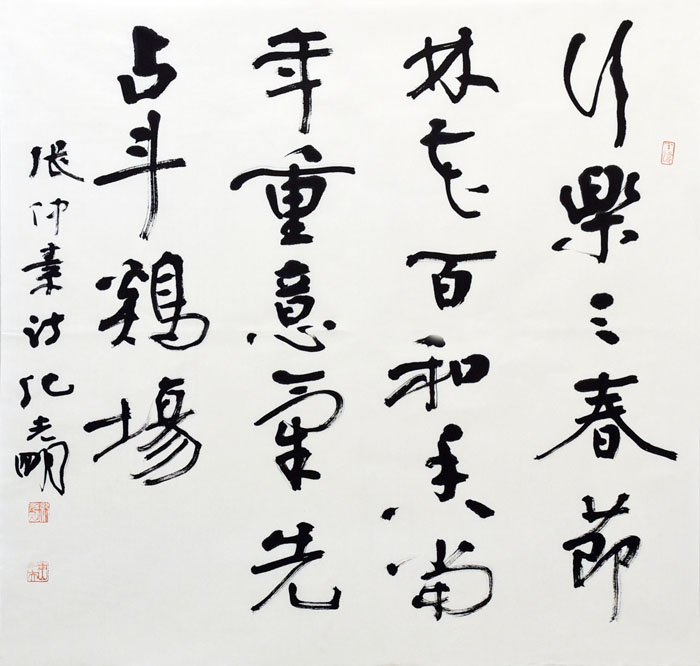 行樂三春節
林花百和香當
年重意氣先
占斗鷄場
張仲素詩 紀光明